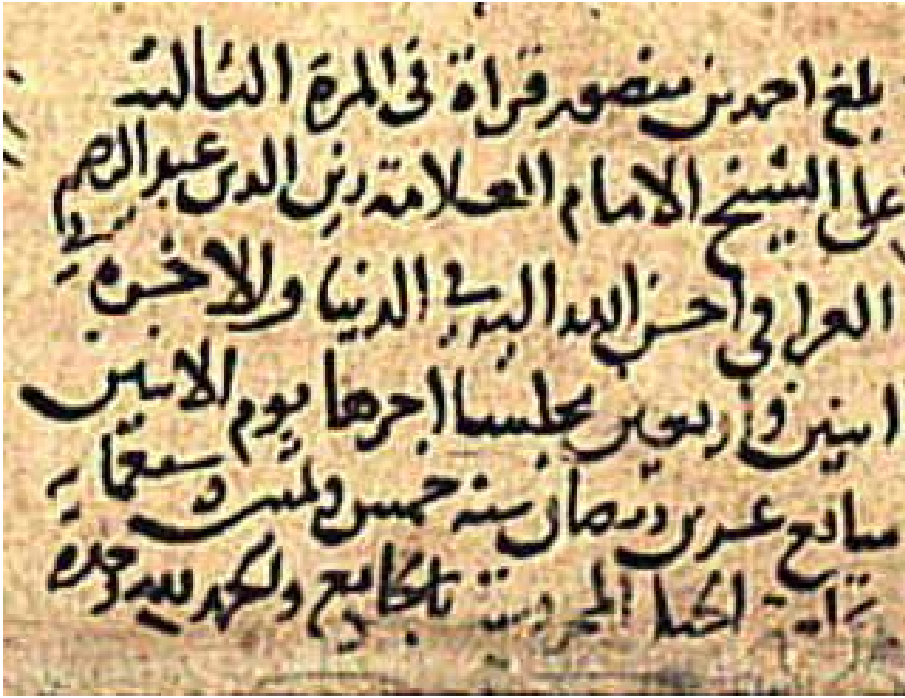 بلغ احمد بن منصور قراة في المرة الثالثة
على الشيخ الامام العلامة زين الدين عبد الرحيم
العراقي احسن الله اليه في الدنيا والاخرة في
اثنين واربعين مجلسا اخرها يوم الاثنين
سابع عشرين رمضان سنة خمس وثمانين وسبعمائة
بالجامع والحمد لله وحده